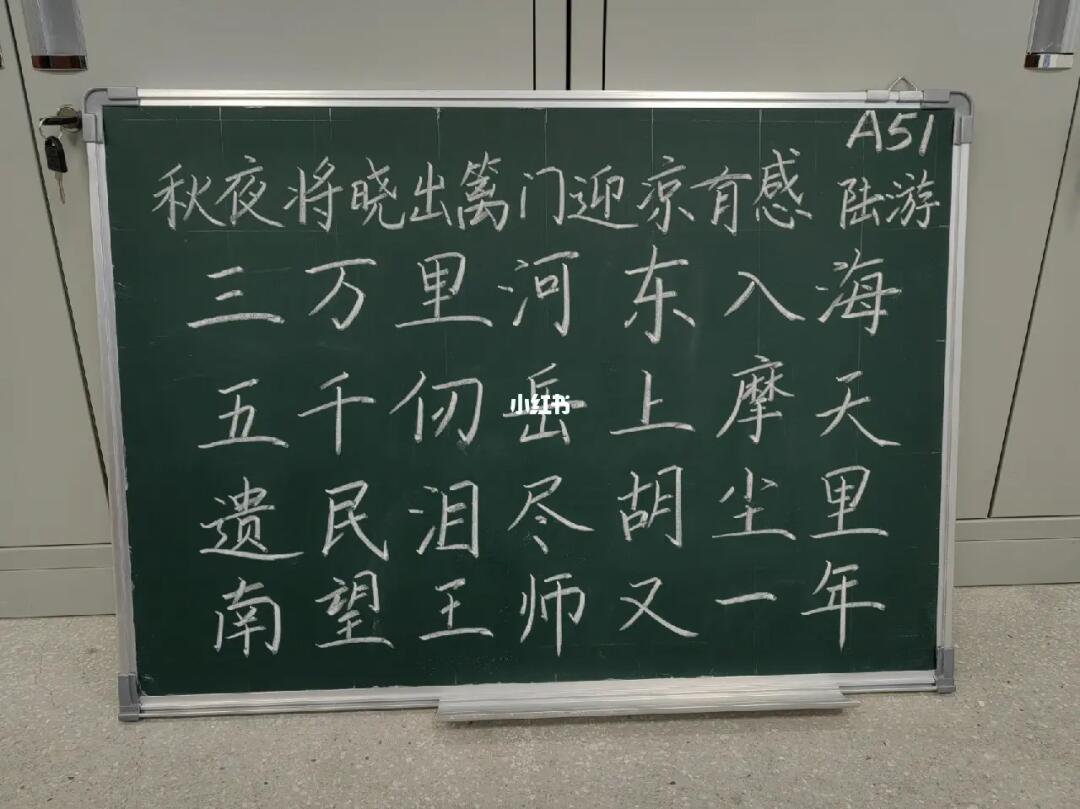 A51
秋夜将晓出篱门迎凉有感 陆游
三万里河东入海
五千仞岳上摩天
遗民泪尽胡尘里
南望王师又一年
小红书